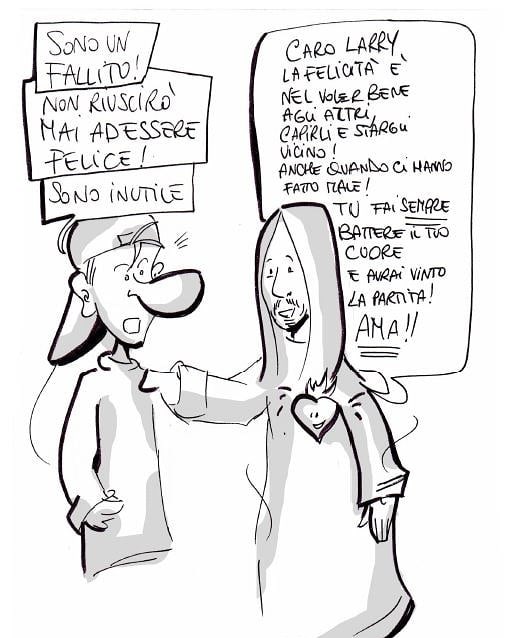 SONO UN
FALLITO!
NON RIUSCIRÒ
MAI AD ESSERE
FELICE!
SONO INUTILE
CARO LARRY
LA FELICITÀ È
NEL VOLER BENE
AGLI ALTRI,
CAPIRLI E STARGLI
VICINO!
ANCHE QUANDO CI HANNO
FATTO MALE!
TU FAI SEMPRE
BATTERE IL TUO
CUORE
E AVRAI VINTO
LA PARTITA!
AMA!!